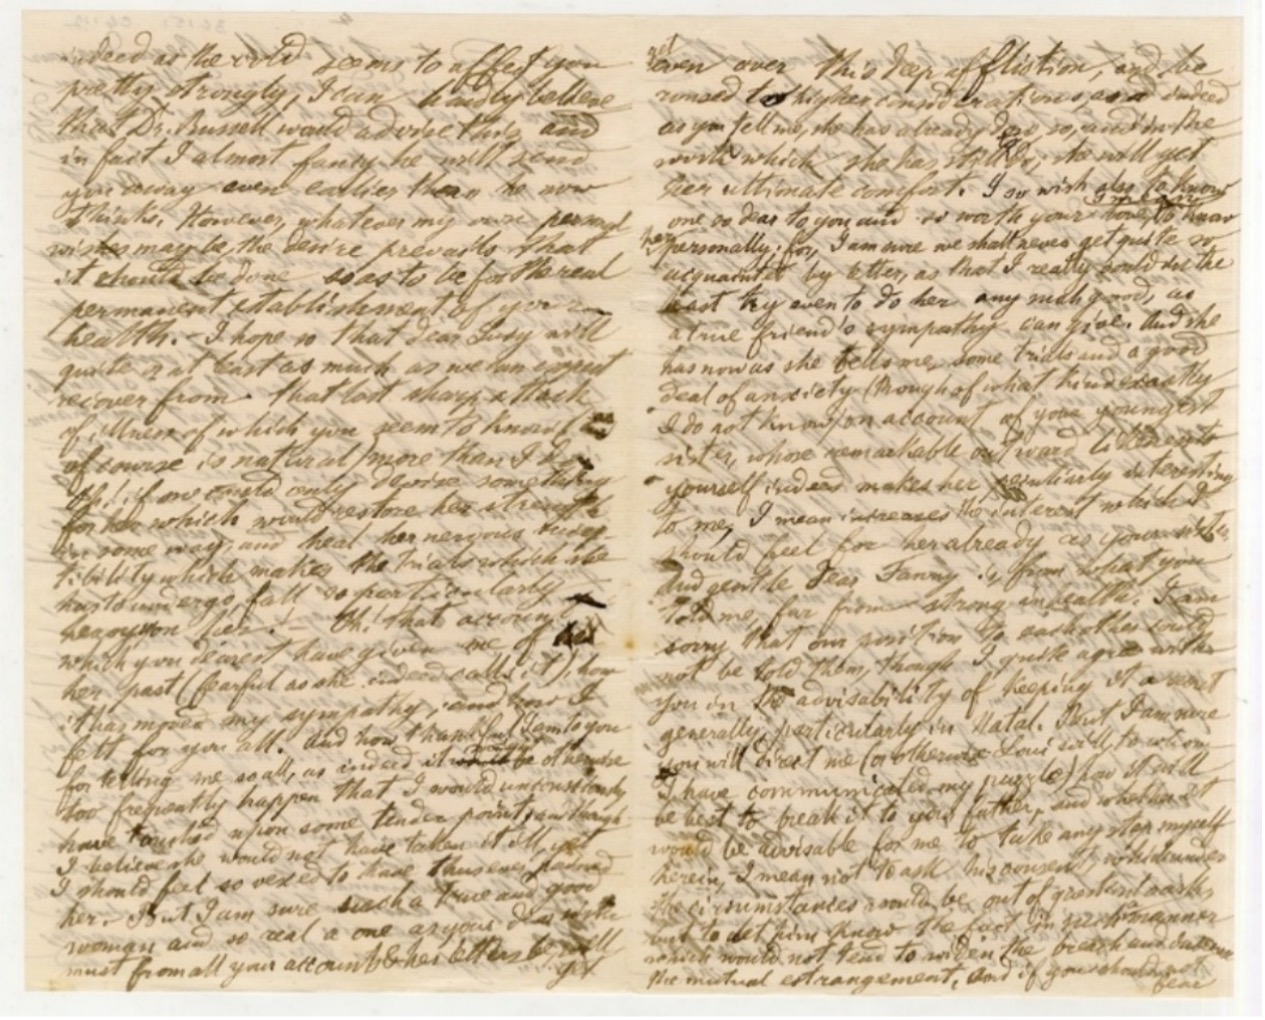 indeed as the cold seems to affect you
pretty strongly, I can hardly believe
that Dr. Russell would advise this, and
in fact I almost fancy he will send
you away even earlier than he now
thinks. However, whatever my own personal
wishes may be, the desire prevails that
it should be done so as to be for the real
permanent establishment of your
health. I hope so that dear Lucy will
quite or at least as much as we can expect
recover from that last sharp attack
of illness of which you seem to know (as
of course is natural) more than I do.
Oh! if one could only devise something
for her which would restore her strength
in some way, and heal her nervous
which makes the trials which she
has to undergo, fall so particularly
heavy on her. Oh! that account
which you dearest have given me of her
her past (fearful as she indeed calls it), how
it has moved my sympathy, and how I
felt for you all. And how thankful I am to you
for telling me so all, as indeed it might be otherwise
too frequently happen that I would unconsciously
have touched upon some tender point, and though
I believe she would not have taken it ill, yet
I should feel so vexed to have thus even pained
her. But I am sure such a true and good
woman and so real a one as your dear sister
must from all your accounts & her letters be, will
yet
get
even over this deep affliction, and be
roused to higher considerations, as indeed
as you tell me, she has already done so, and in the
work which she has still to do, she will get
her ultimate comfort. I so wish also to know
one so dear to you and so worth your love, to know
her personally; for, I am sure we shall never get quite so
acquainted by letter, as that I really could in the
least try even to do her any such good, as
a true friend's sympathy can give. And she
has now as she tells me, some trials and a good
deal of anxiety (though of what kind exactly
I do not know) on account of your youngest
sister, whose remarkable outward likeness to
yourself indeed makes her peculiarly interesting
to me, I mean increases the interest which I
should feel for her already as your sister,
And gentle dear Fanny is, from what you
told me, far from strong in health. I am
sorry that our position to each other could
not be told them, though I quite agree with
you on the advisability of keeping it a secret
generally, particularly in Natal. But I am sure
you will direct me (or otherwise Loui will, to whom
I have communicated my puzzle) how it will
be best to break it to your father, and whether it
would be advisable for me to take any step myself
herein, I mean not to ask his consent, which under
the circumstances would be out of question to ask,
but to let him know the fact in such manner
which would not tend to widen the breach and
the mutual estrangement. And if you should not
fear